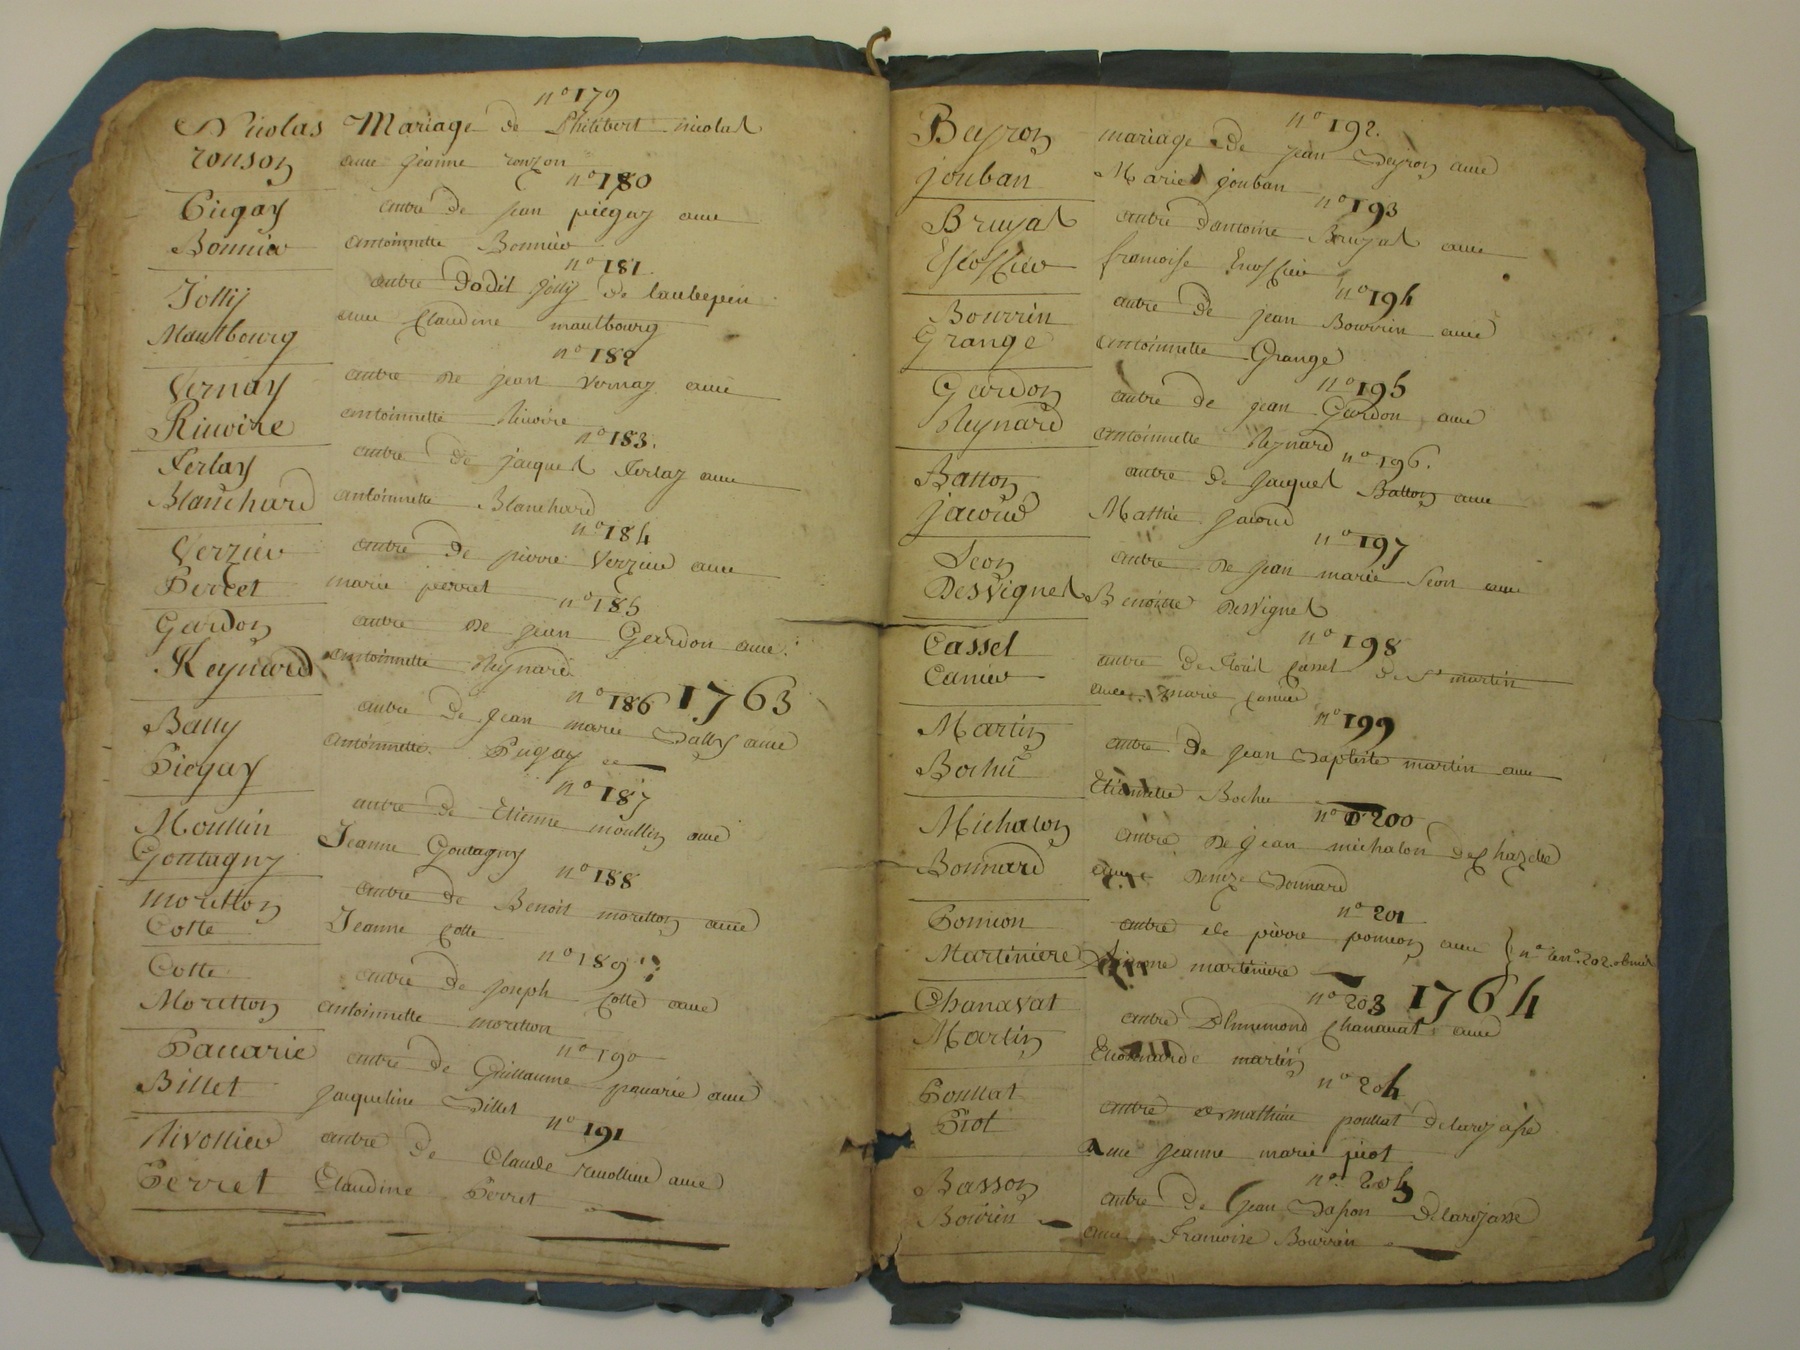 n° 179
Nicolas Mariage de Philibert nicolas
ronson avec jeanne ronzon
n° 180
Piegay autre de jean piegay avec
Bonnier antoinnette Bonnier
n° 181
Jolly autre dodit jolly de laubepin
Maultbourg avec Claudine maultbourg
n° 182
Vernay autre de jean vernay avec
Riuoire antoinnette Riuoire
n° 183.
Ferlay autre de jacques Ferlay avec
Blanchard antoinnette Blanchard
n° 184
Verzier autre de pierre Verzier avec
Perret marie perret
n° 185
Gardon autre de jean Gardon avec
Reynard antoinnette Reynard
n° 186 1763
Bally autre de jean marie Bally avec
Piegay antoinnette Piegay
n° 187
Moullin autre de Etienne moullin avec
Goutagny Jeanne Goutagny
n° 188
moretton autre de Benoit moretton avec
Cotte Jeanne Cotte
n° 189
Cotte autre de joseph Cotte avec
Moretton antoinnette moretton
n° 190
Pauarie autre de Guillaume pauarie avec
Billet jacqueline Billet
n° 191
Rivollier autre de Claude reuollier avec
Perret Claudine Perret
n° 192.
Beyron mariage de jean Beyron avec
jouban Marie jouban
n° 193
Bruyas autre dantoine Bruyas avec
Escossier francoise Escossier
n° 194
Bouvrin autre de jean Bouvrin avec
Grange antoinnette Grange
n° 195
Gardon autre de jean Gardon avec
Reynard antoinnette Reynard
n° 196.
Batton autre de jacques Batton avec
jacoud Mathie jacoud
n° 197
Seon autre de jean marie Seon avec
Desvignes Benoitte Desvignes
n° 198
Casset autre de Casset de St martin
Canier avec marie Canier
n° 199
Martin autre de jean Baptiste martin avec
Bochu Etiennette Bochu
n° 200
Michalon autre de jean michalon de Chazelle
Bonnard avec Denize Bonnard
n° 201
Pomion autre de pierre pomion avec } n° 202 obmis
Martiniere martiniere
n° 203 1764
Chanavat autre Dhumemond Chanauat avec
Martin martin
n° 204
Poullat autre de mathieu poullat de larajasse
Piot avec jeanne marie piot
n° 205
Basson autre de jean Basson de larajasse
Bouvrin avec Francoise Bouvrin